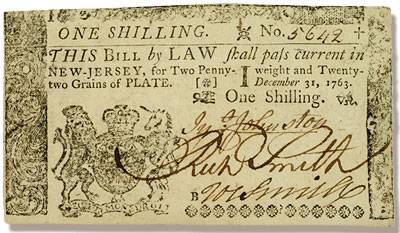 ONE SHILLING. No. 5642
THIS BILL by LAW ſhall paſs current in
NEW-JERSEY, for Two Penny-weight and Twenty-
two Grains of PLATE. [*] I December 31, 1763.
One Shilling.
Johnston
Richd Smith
B W Smith
MON DROIT